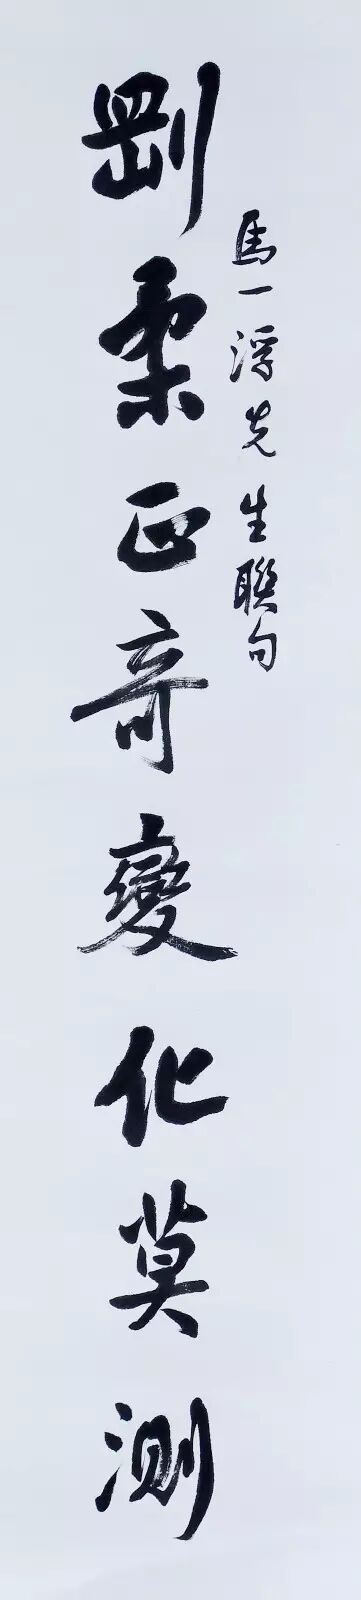 馬一浮先生聯句
剛柔正奇變化莫測